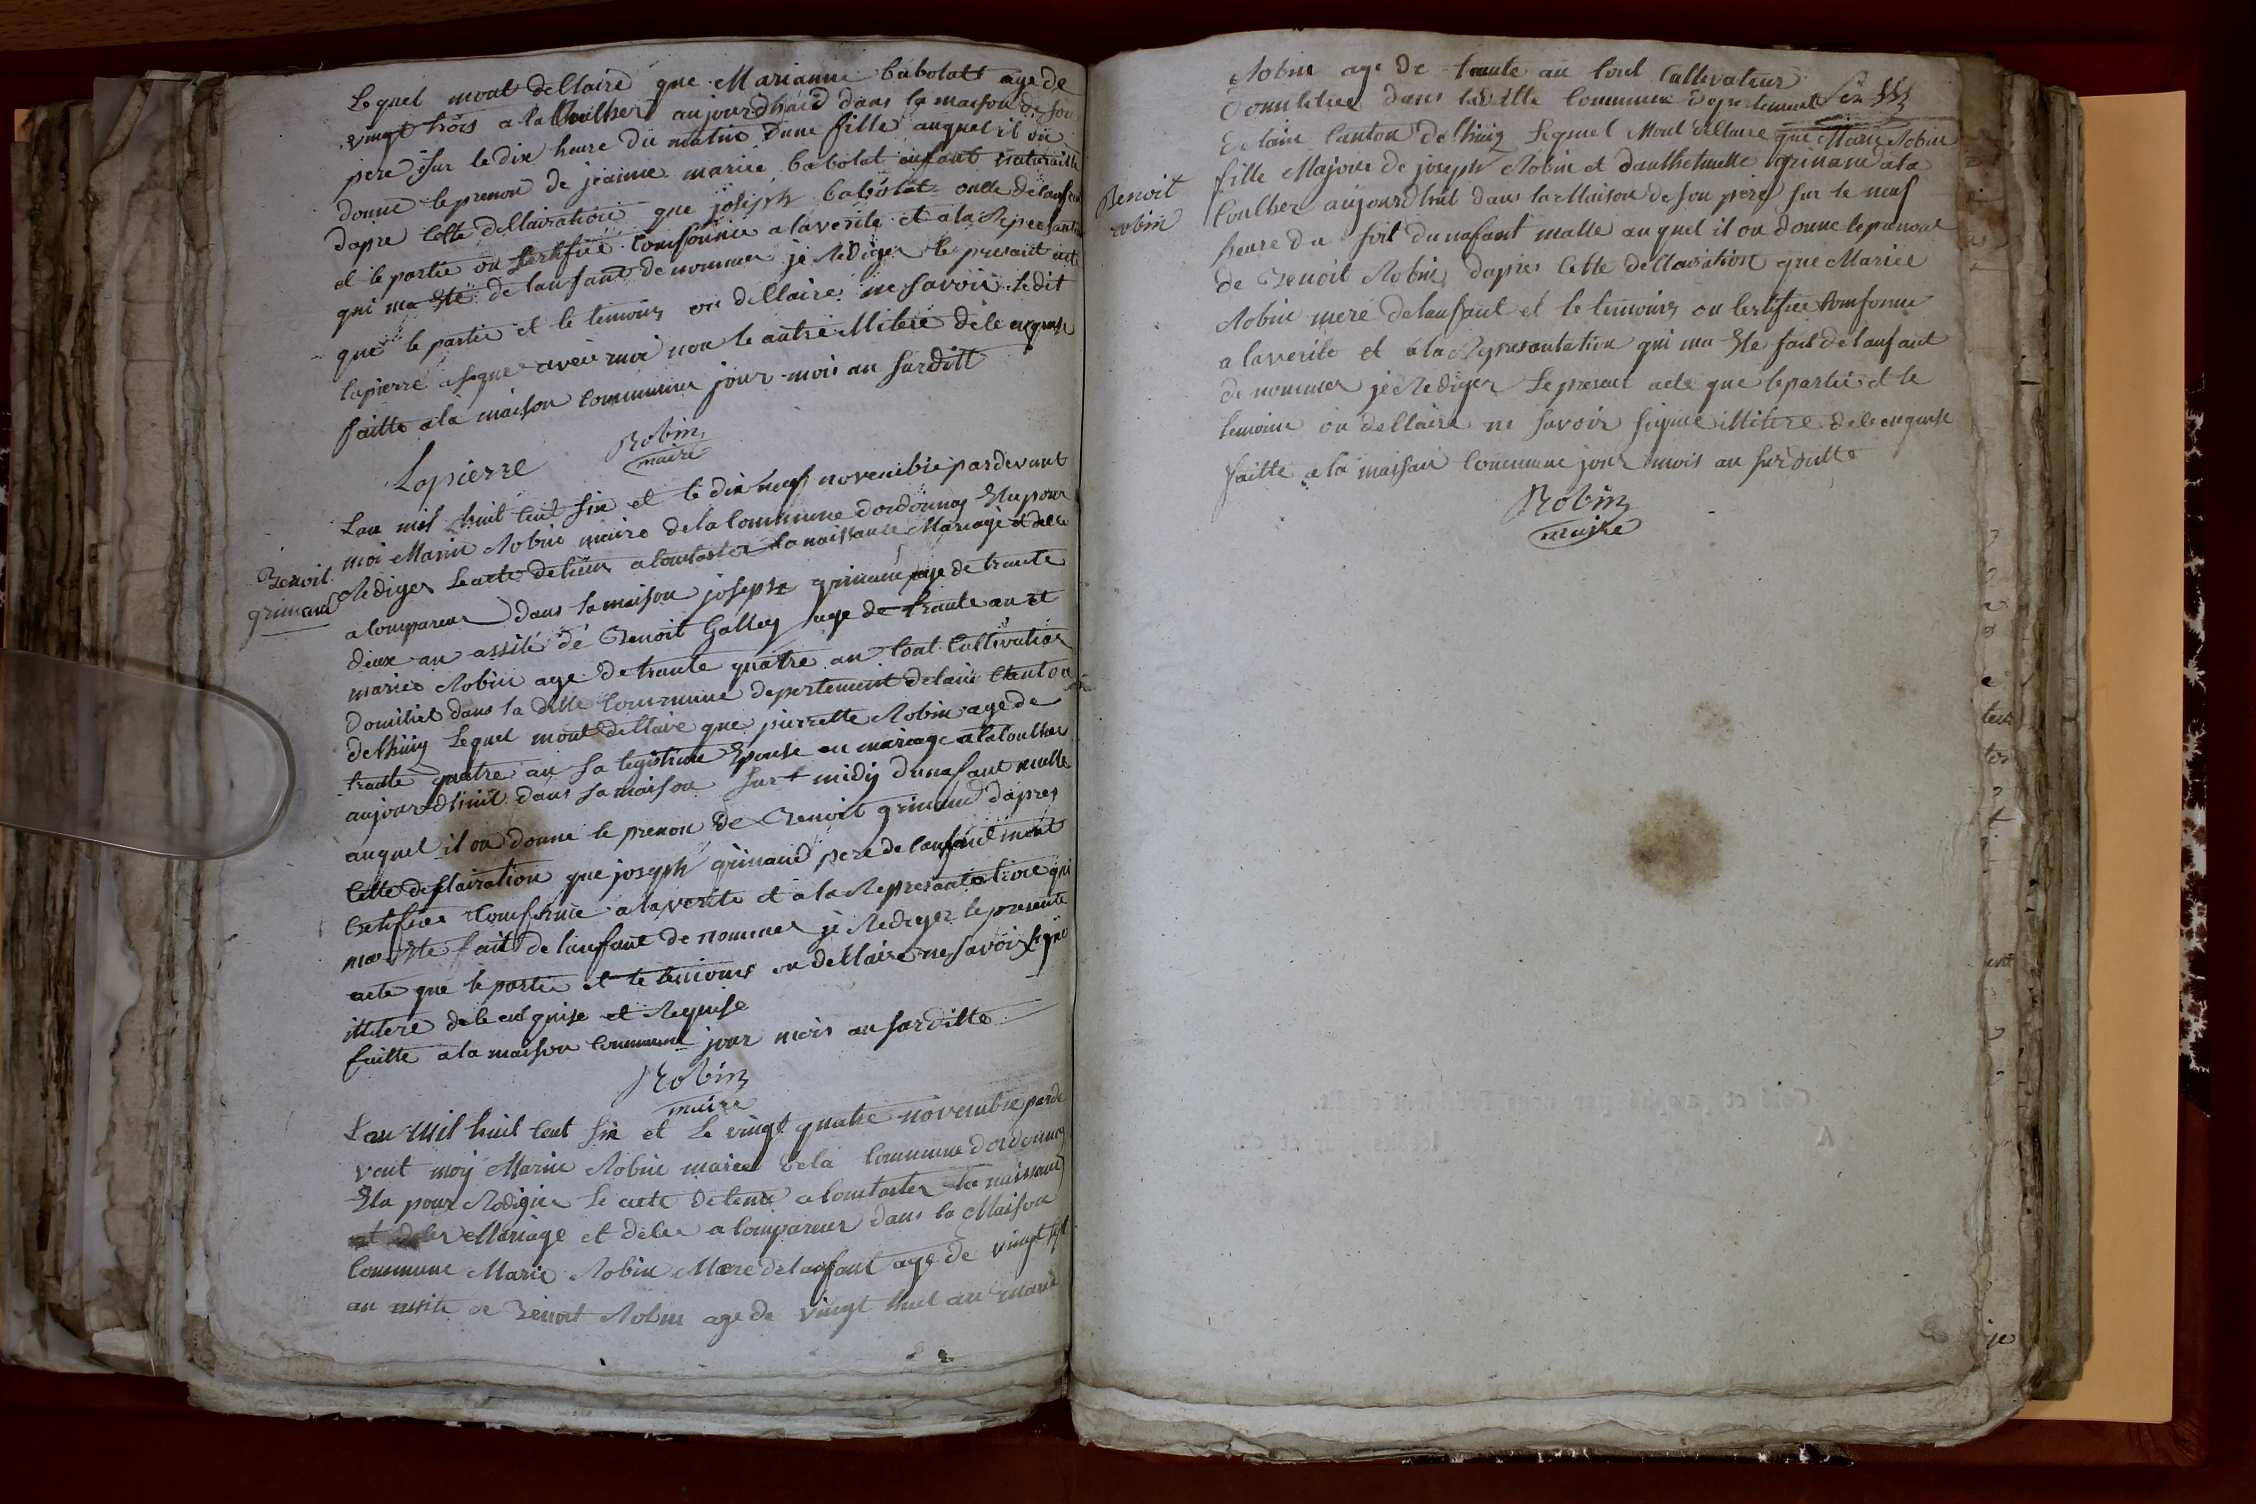 Lequel mont dellaire que Marianne babolat age de
vingt trois a la Coulher aujourdhuid dans la maison de son
pere sur le dix heure du matin dune fille auquel il on
donne le prenon de jeainne mariie babolat anfant naturaille
dapre cette dellairation que joseph babolat oncle de lanfant
et le partie on sertifiee comforme a laverite et a la Represantation
qui ma Ete de lanfant de nommer je Rediger le presant acte
que le partie et le temoins on dellaire ne savoir le dit
lapierre a signe avec moi non le autre illitere de le enquise
faitte a la maison commune jour mois an surditt
Lapierre Robin
maire
Lan mil huit cent six et le dix neuf novembre pardevant
moi Marin Robin maire de la Commune dordonnas Elu pour
Rediger le acte de a Contaster la naissance Mariage et dele
a compareu dans la maison joseph grimaud age de trante
deux an assité de Benoit Galley age de trante an et
mariee Robin age de trante quatre an tout Cultivateur
Domiliet dans la dille Commune depertement delain Canton
de lhuiy Lequel mont dellaire que pierrette Robin age de
trante quatre an sa legistime Epouse en mariage a la Coulher
aujourdhuit dans sa maison sur midy dunafant malle
auquel il on donne le prenon de Benoit grimaud dapres
cette dellairation que joseph grimaud pere de lanfant mont
certifier comforme a laverite et a la Represantation qui
ma Ete fait de lanfant de nommer je Rediger le presente
acte que le partie et le temoins on dellaire ne savoir signe
illitere de le enquise et Requise
faitte a la maison Commune jour mois an surditte
Robin
maire
Benoit
grimaud
Lan Mil huit cent six et Le vingt quatre novembre parde
vent moy Marin Robin maire dela Commune dordonnas
Elu pour Rediger le acte de a Contaster la naissance
et deler Mariage et dele a compareur dans la Maison
Commune Marie Robin Mere de lanfant age de vingt sept
an assite de Benoit Robin age de vingt huit an
Robin age de trante an tout Cultivateur
Domiliee dans la Dille Commune Depertement
Delain Canton de lhuiy Lequel Mont dellaire que Marie Robin
fille Majoure de joseph Robin et danthelmette grimaud a la
Coulher aujourdhuit dans la Maison de son pere sur le neuf
heure du soit dunafant malle auquel il on donne le prenon
de Benoit Robin dapres Cette dellairation que Mariee
Robin mere de lanfant et le temoins on certifiee Comforme
a laverite et a la Represantation qui ma Ete fait de lanfant
de nommer je Rediger Le presant acte que le partie et le
temoins on dellaire ne savoir signe illitere de le enquise
faitte a la maison Commune jour mois an surditte
Robin
maire
Benoit
robin